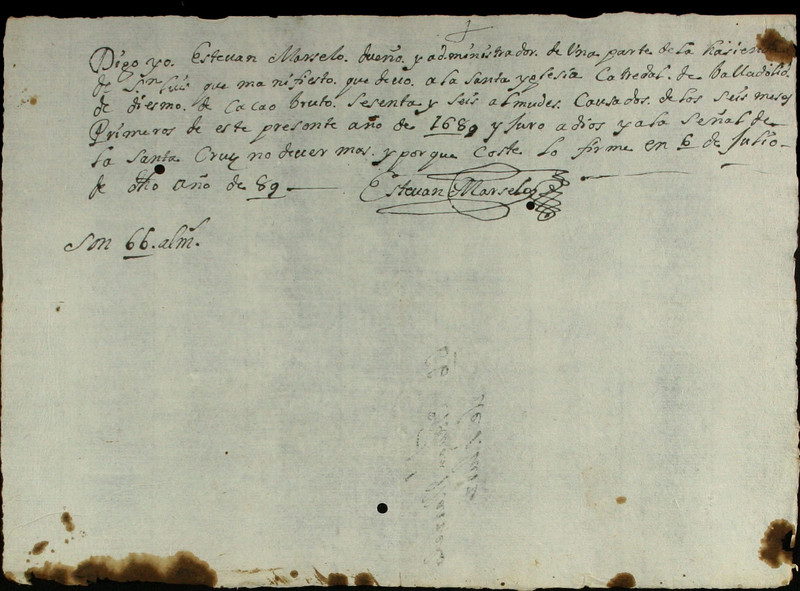 Digo yo. Estevan Marselo. dueño. y administrador. de Una parte de la hasienda
de Sn luis que manifiesto. que devo. a la santa yglesia Catredal. de Balladolid
de diesmo. de Cacao bruto. Sesenta y seis almudes. Causados. de los seis meses
Primeros de este presente año de 1689 y Juro a dios y a la Señal de
la santa Cruz no dever mas. y porque Coste lo firme en 6 de Julio
de dho año de 89
Estevan Marselo
son 66. alms.